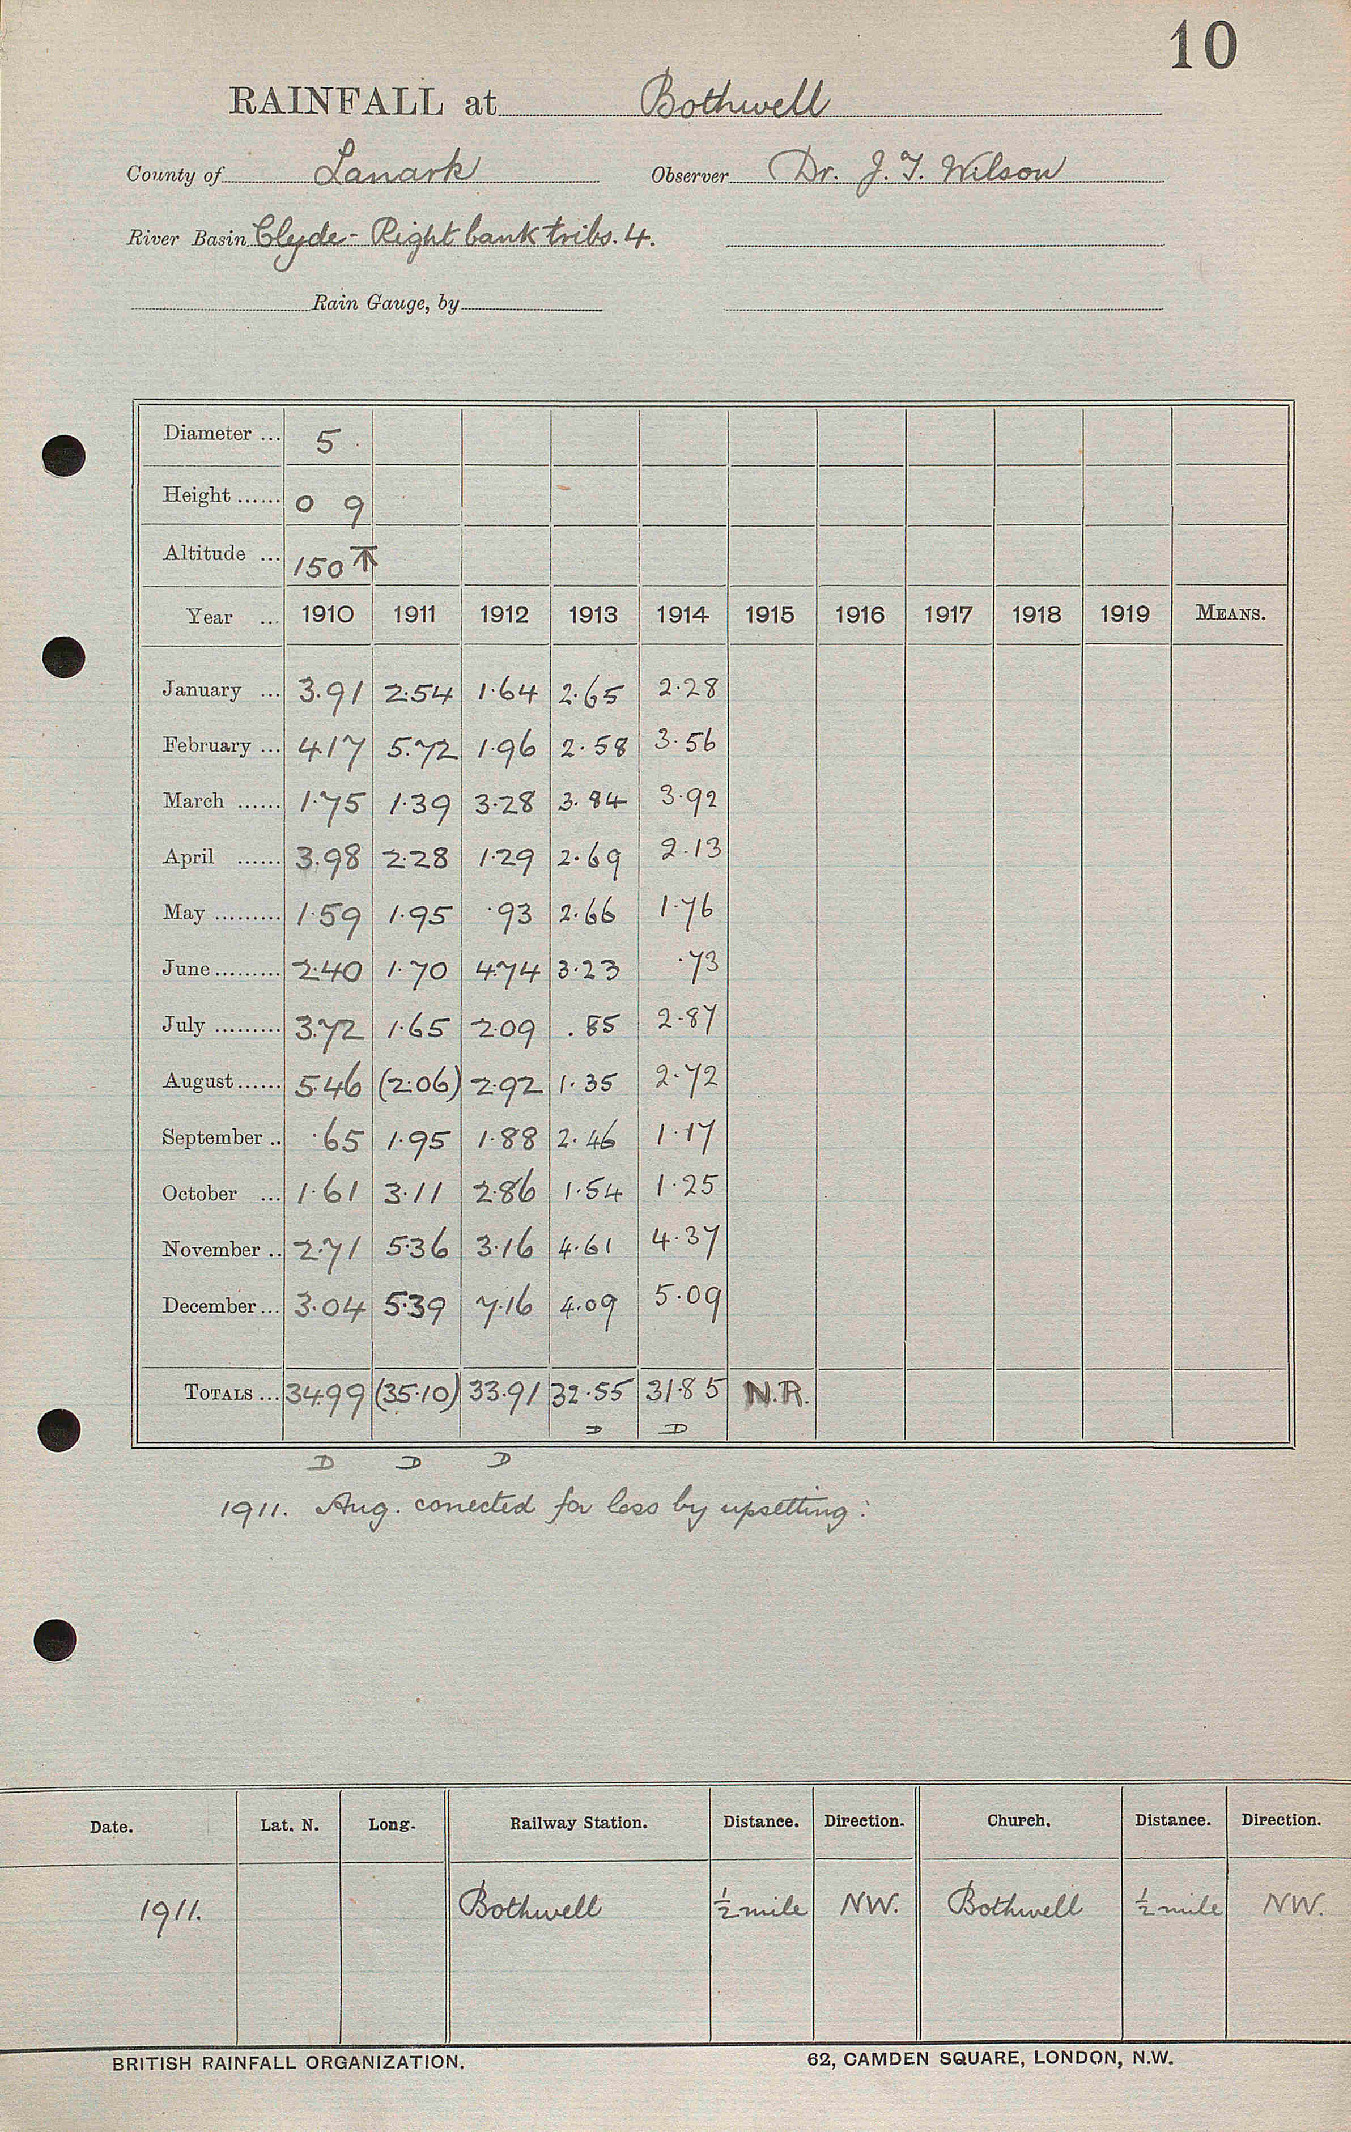 10
RAINFALL at Bothwell
County of Lanark Observer Dr. J. T. Wilson
River Basin Clyde - Right bank tribs. 4.
Rain Gauge, by
Diameter ... 5
Height ...... 0 9
Altitude ... 150
Year ... 1910 1911 1912 1913 1914 1915 1916 1917 1918 1919 MEANS.
January ... 3.91 2.54 1.64 2.65 2.28
February ... 4.17 5.72 1.96 2.58 3.56
March ...... 1.75 1.39 3.28 3.84 3.92
April ...... 3.98 2.28 1.29 2.69 2.13
May ......... 1.59 1.95 .93 2.66 1.76
June ......... 2.40 1.70 4.74 3.23 .73
July ......... 3.72 1.65 2.09 .85 2.87
August ...... 5.46 (2.06) 2.92 1.35 2.72
September .. .65 1.95 1.88 2.46 1.17
October ... 1.61 3.11 2.86 1.54 1.25
November .. 2.71 5.36 3.16 4.61 4.37
December ... 3.04 5.39 7.16 4.09 5.09
TOTALS ... 34.99 (35.10) 33.91 32.55 31.85 N.R.
D D
D D D
1911. Aug. corrected for loss by upsetting.
Date. Lat. N. Long. Railway Station. Distance. Direction. Church. Distance. Direction.
1911. Bothwell ½ mile NW. Bothwell ½ mile NW.
BRITISH RAINFALL ORGANIZATION. 62, CAMDEN SQUARE, LONDON, N.W.